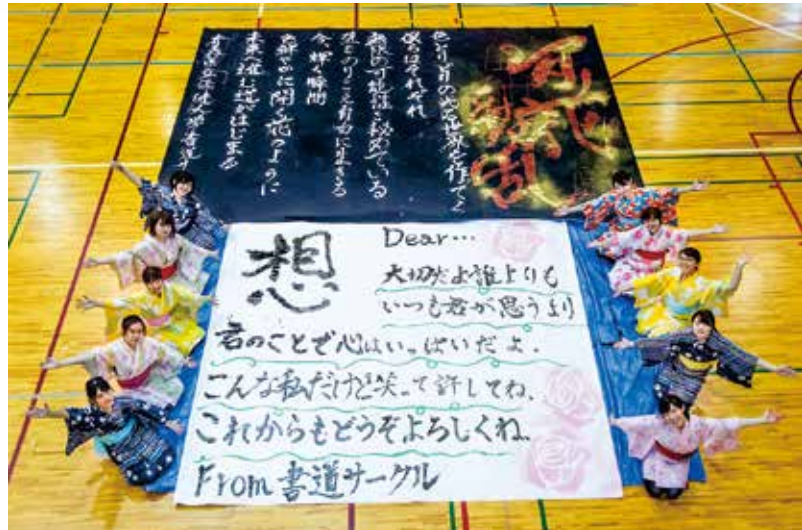 百花繚乱
色とりどりの 世界を作ってく
僕らはそれぞれ
無限の可能性を秘めている
のりこえ自由に生きる
今、輝く瞬間
色鮮やかに開く花のように
未来へ進む道がはじまる
想
Dear…
大切だよ誰よりも
いつも君が思うより
君のことで心はいっぱいだよ.
こんな私だけど笑って許してね、
これからもどうぞよろしくね、
From 書道サークル